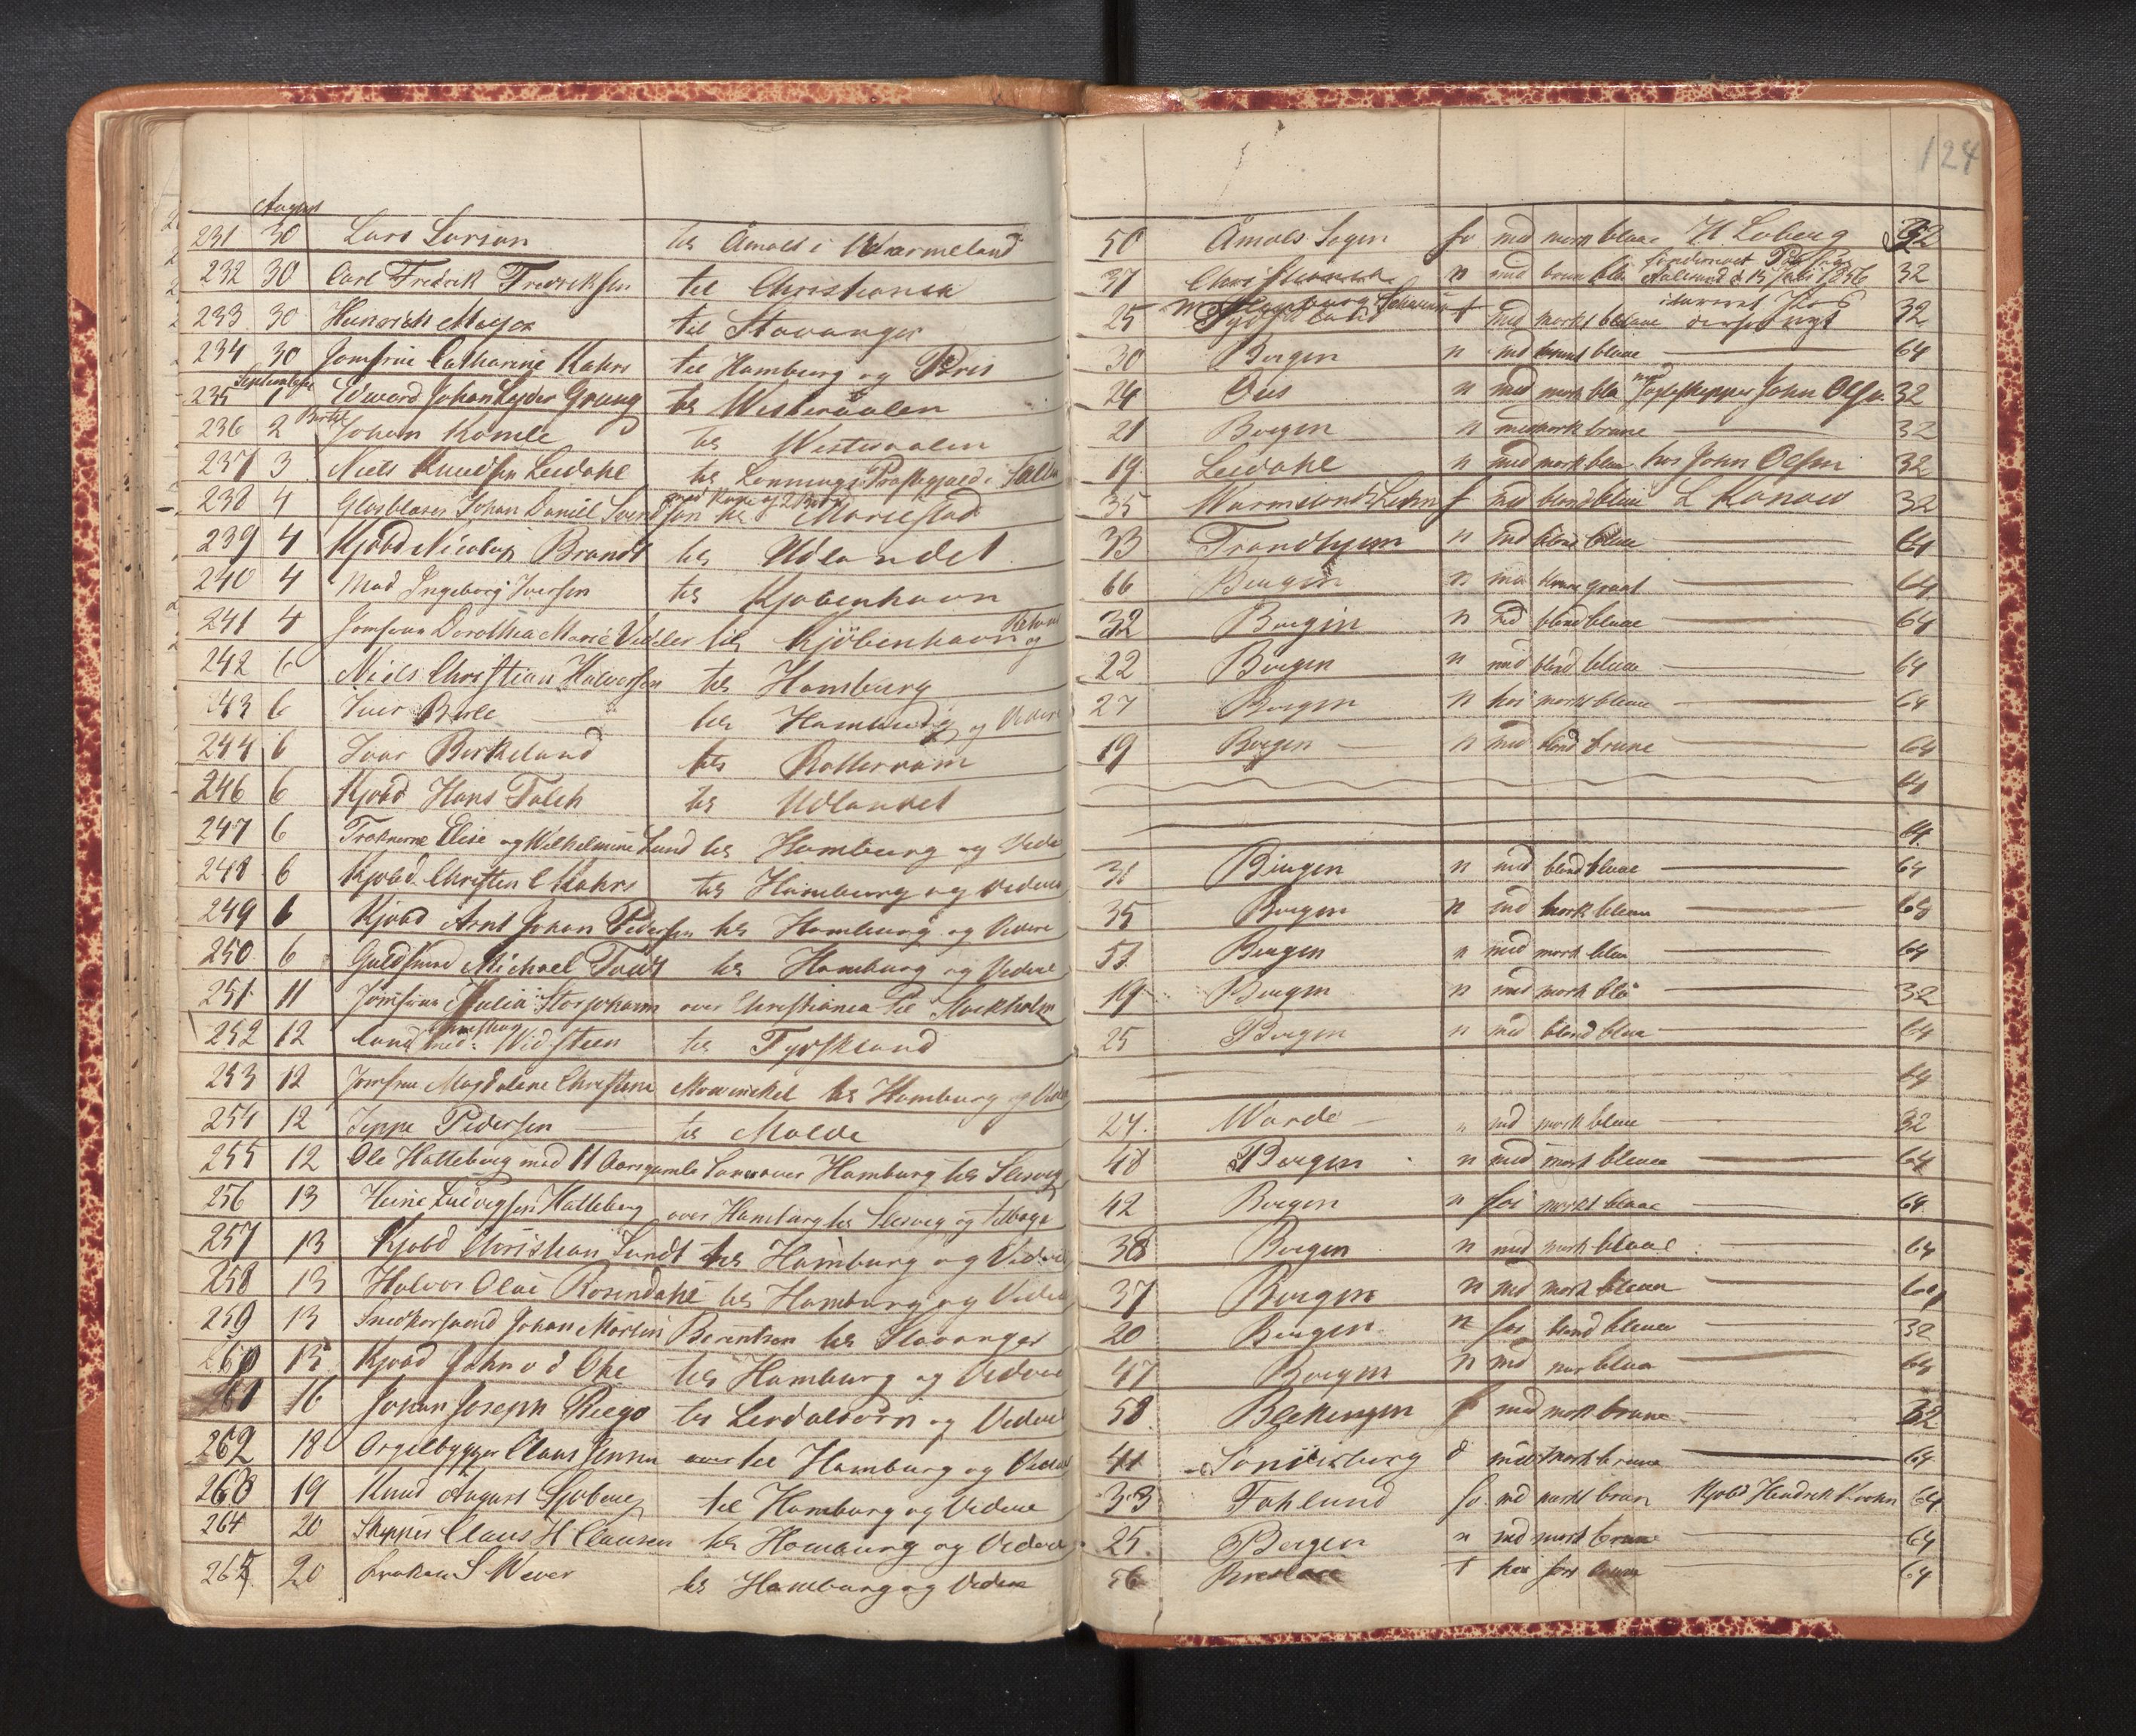 124
August
231 30 Lars Larson til Åmåls i Wærmeland 50 Åmåls Sogen sv med mork blaae H Loberg 32
232 30 Carl Fredrik Fredriksen til Christiania 37 Christiania n med brun blå 32
233 30 Heinrich Meyer til Stavanger 25 Tydskland t med morkt blaae 32
234 30 Jomfrue Catharine Kahrs til Hamburg og Paris 30 Bergen n med brunt blaae 64
September
235 1 Edward Johan Lyder Grung til Westeraalen 24 Ous n med mork blå med John Olsen 32
236 2 Johan Komle til Westeraalen 21 Bergen n med mork brune 32
237 3 Niels Knudsen Leidahl til Præstegaard i 19 Leidahl n med mork blaae hos John Olsen 32
238 4 Glasblaser Johan Daniel til Mariestad 35 med blond blaae L Konow 32
239 4 Kjobd Nicolay Brandt til Udlandet 33 Trondhjem n med blond blaae 64
240 4 Mad Ingeborg Iversen til Kjobenhavn 66 Bergen n med brun graat 64
241 4 Jomfrue Dorothea Marie Vedeler til Kjöbenhavn og 32 Bergen n med blond blaae 64
242 6 Niels Christian Halvorsen til Hamburg 22 Bergen n med blond blaae 64
243 6 Iver Berle til Hamburg og Videre 27 Bergen n hoi mork blaae 64
244 6 Ivar Berkeland til Rotterdam 19 Bergen n med blond brune 64
246 6 Kjobd Hans Falch til Udlandet 64
247 6 Frøknerne Elise og Wilhelmine Lund til Hamburg og Vide 64
248 6 Kjobd Christen C Kahrs til Hamburg og Videre 31 Bergen n med blond blaae 64
249 6 Kjobd Arnt Johan Pedersen til Hamburg og Videre 35 Bergen n med mork blaae 64
250 6 Guldsmed Michael til Hamburg og Videre 51 Bergen n med mork blaa 64
251 11 Jomfrue Julia Storjohann over Christiania til Stockholm 19 Bergen n med mork blå 32
252 12 Cand med: Vidsteen til Tydskland 25 Bergen n med blond blaa 64
253 12 Jomfrue Magdalene Christine Mowinckel til Hamburg og Videre 64
254 12 Jeppe Pedersen til Molde 27 Warde n med mork blaae 32
255 12 Ole Hatteberg med 11 Aarsgamle Søn over Hamburg til Slesvig 48 Bergen n med mork blaaa 64
256 13 Heine Ludvigsen Hatteberg over Hamburg til Slesvig og tilbage 42 Bergen n hoi morkt blaae 64
257 13 Kjobd Christian Sundt til Hamburg og Videre 38 Bergen n med mork blaae 64
258 13 Halvor Olai Rosendahl til Hamburg og Videre 37 Bergen n med mork blaaa 64
259 13 Snedkersvend Johan Martin Berentsen til Stavanger 20 Bergen n hoi blond blaaa 32
260 15 Kjobd John v d Ohe til Hamburg og Videre 47 Bergen n med blaa 64
261 16 Johan Joseph Riego til Leirdalsorn og Videre 58 Blekingen f med mork brune 32
262 18 Orgelbygger Claus Jensen til Hamburg og Videre 41 Sonderborg d med mork brune 64
263 19 Knud August Sjoberg til Hamburg og Videre 33 Fahlund sv med morkt brun Kjobd Hendrik Krohn 64
264 20 Skipper Claus H Clausen til Hamburg og Videre 25 Bergen n med mork brune 64
265 20 S Wever til Hamburg og Videre 56 Breslau t hoi sort brune 64